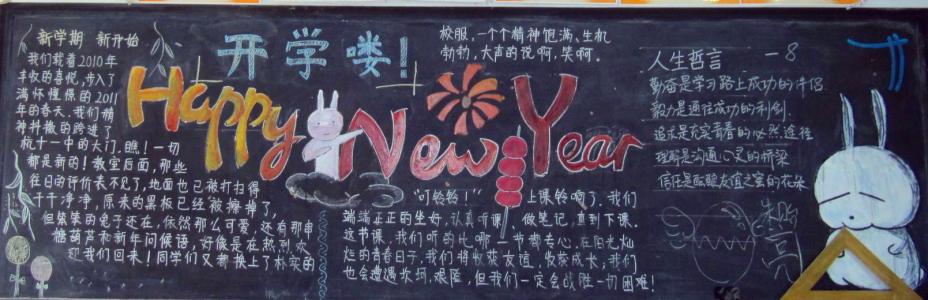 新学期 新开始
我们载着2010年
丰收的喜悦,步入了
满怀憧憬的2011
年的春天,我们精
神抖擞的跨进了
杭十一中的大门。瞧!一切
都是新的!教室后面,那些
往日的评价表不见了,地面也已被打扫得
干干净净,原来的黑板已经被擦掉了,
但笨笨的兔子还在,依然那么可爱,还有那串
糖葫芦和新年问候语,好像是在热烈欢
迎我们回来!同学们又都换上了朴实的
校服,一个个精神饱满、生机
勃勃,大声的说啊,笑啊。
开学喽!
Happy New Year
"叮铃铃!" 上课铃响了,我们
端端正正的坐好,认真听课,做笔记,直到下课。
这节课,我们听的比哪一节都专心,在阳光灿
烂的青春日子,我们将收获友谊,收获成长,我们
也会遭遇坎坷、艰险,但我们一定会战胜一切困难!
人生哲言 -8
勤奋是学习路上成功的伴侣
毅力是通往成功的利剑
追求是充实青春的必然途径
理解是沟通心灵的桥梁
信任是浇灌友谊之家的花朵